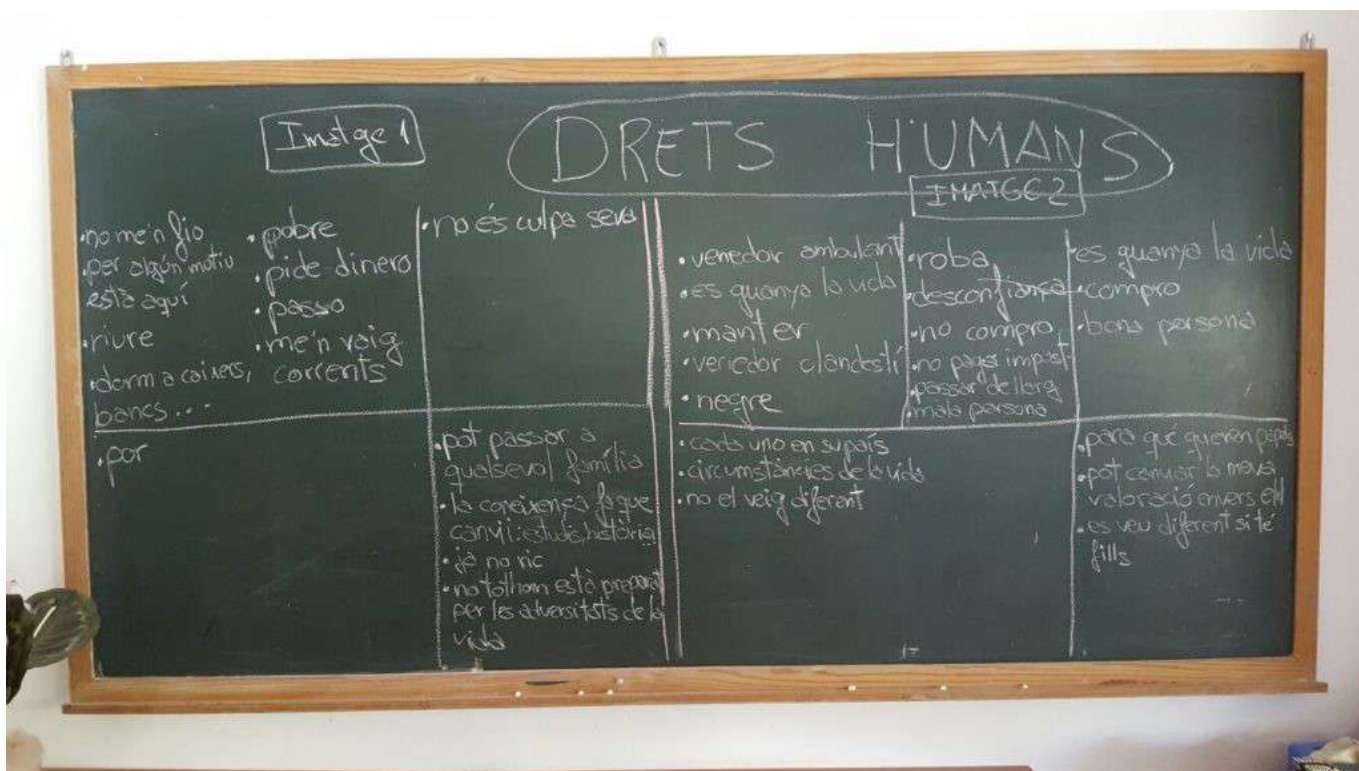 Imatge 1
DRETS HUMANS
IMATGE 2
•no me'n fio
•per algún motiu
està aquí
•riure
•dorm a caixers,
bancs...
•pobre
•pide dinero
•passo
•me'n vaig
corrents
•no és culpa seva
•por
•pot passar a
qualsevol família
•la coneixença fa que
canvi: estudis, història
•ja no ric
•no tothom està preparat
per les adversitats de la
vida
•venedor ambulant
•es guanya la vida
•manter
•venedor clandestí
•negre
•roba
•desconfiança
•no compro
•no paga impost
•passar de llarg
•mala persona
•es guanya la vida
•compro
•bona persona
•cada uno en su país
•circumstàncies de la vida
•no el veig diferent
•para qué quieren
•pot canviar la meva
valoració envers ell
•es veu diferent si té
fills